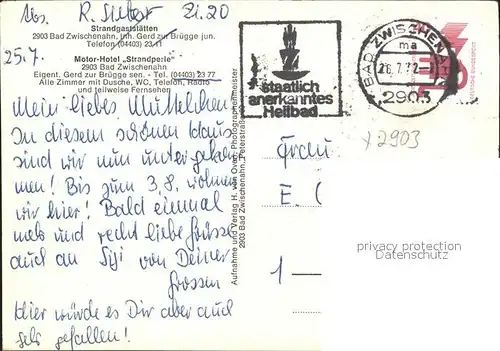 Abs. R. Siebert Zi. 20
Strandgaststätten
2903 Bad Zwischenahn, Inh. Gerd zur Brügge jun.
Telefon (04403) 23 11
25.7.
Motor-Hotel „Strandperle“
2903 Bad Zwischenahn
Eigent. Gerd zur Brügge sen. - Tel. (04403) 23 77
Alle Zimmer mit Dusche, WC, Telefon, Radio
und teilweise Fernseher
Mein liebes Muttelchen
In diesem schönen Haus
sind wir nun untergekom
men! Bis zum 3.8. wohnen
wir hier! Bald einmal
mehr und recht liebe Grüsse
auch an von Deiner
Grossen
Hier würde es Dir aber auch
sehr gefallen!
Aufnahme und Verlag H. von Oven, Photographenmeister
2903 Bad Zwischenahn, Peterstraße
staatlich
anerkanntes
Heilbad
BAD ZWISCHENAHN
ma
26.7.72
2903
DEUTSCHE BUNDESPOST
x2903
Frau
E. (
1
privacy protection
Datenschutz